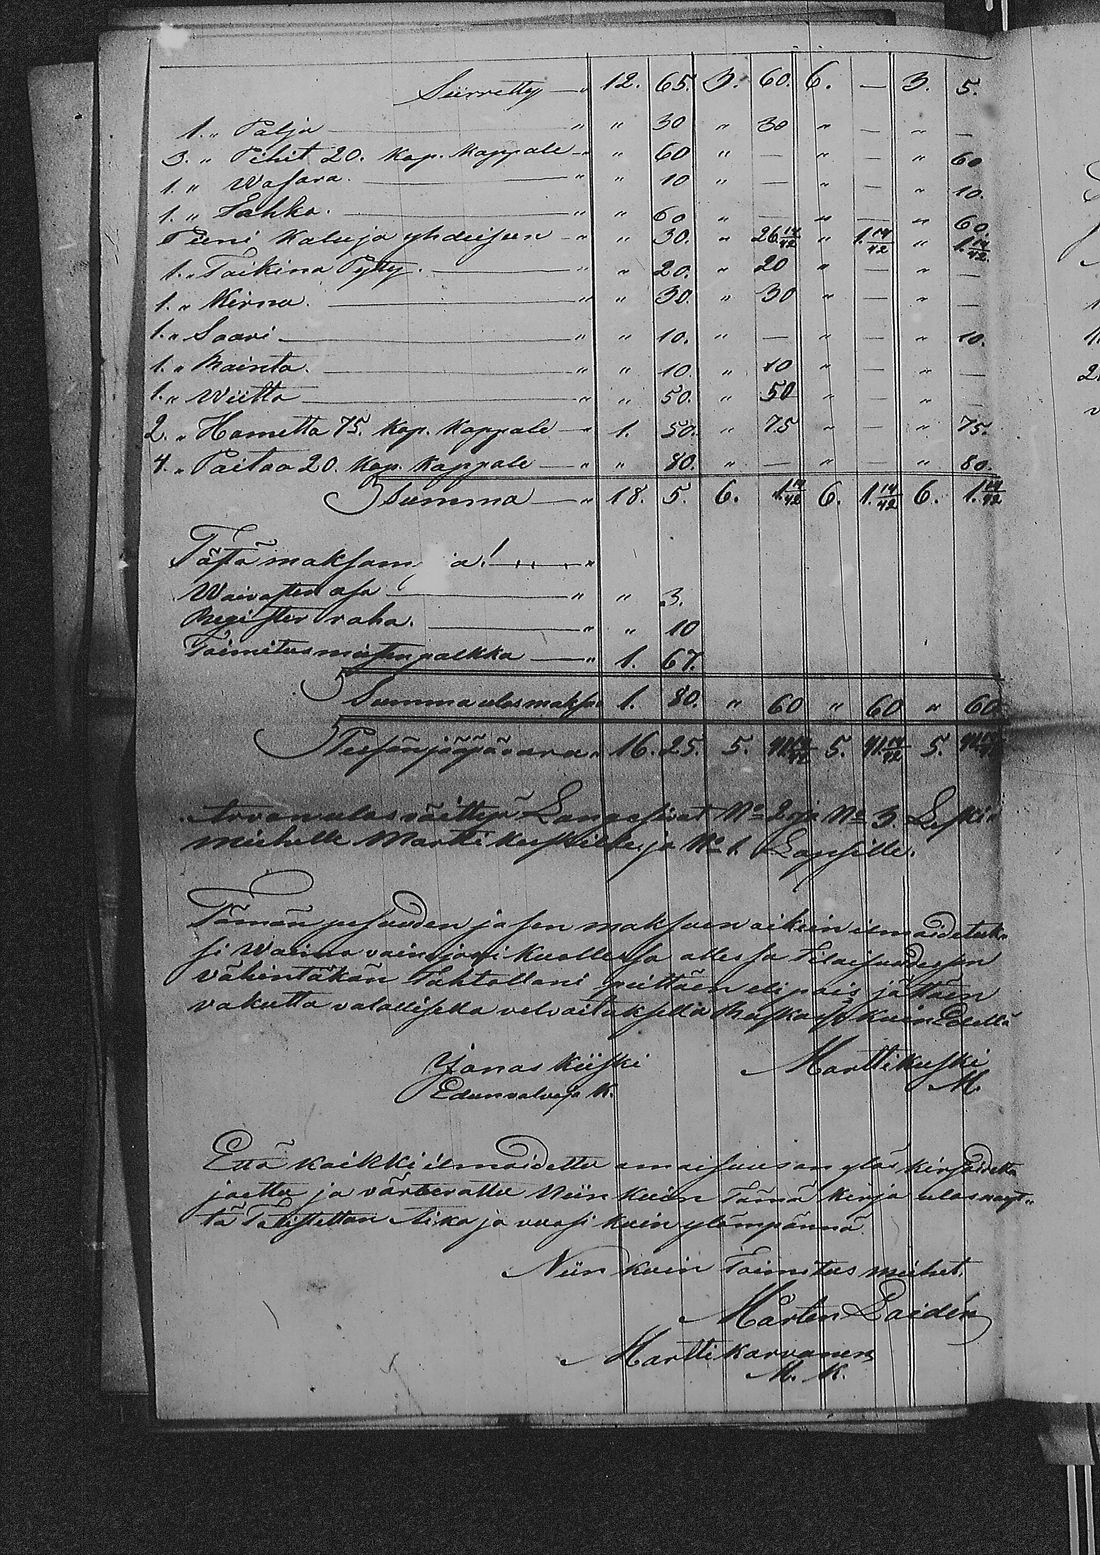 Siirretty — " 12. 65. 3. 60. 6. — 3. 5.
1. " Palja — " " 30 " 30 " — " —
3. " Pihit 20. kop. kappale — " " 60 " — " — " 60
1. " Wasara. — " " 10 " — " — " 10.
1. " Sahka. — " " 60 " — " — " 60.
Pieni kaluja yhteisen — " " 30. " 26 14/42 " 1. 14/42 " 1. 14/42
1. " Taikina Pytty. — " " 20. " 20 " — " —
1. " Kirnu. — " " 30. " 30 " — " —
1. " Saavi — " " 10. " — " — " 10.
1. " Rainta. — " " 10. " 10 " — " —
1. " Wiitta — " " 50. " 50 " — " —
2. " Hametta 75. kop. kappale — " 1. 50. " 75 " — " 75.
4. " Paitaa 20. kop. kappale — " " 80. " — " — " 80.
Summa — " 18. 5. 6. 1. 14/42 6. 1. 14/42 6. 1. 14/42
Tästä maksam a! — "
Waivasten osa — " " 3.
Register raha. — " " 10
Toimitus miesten palkka — " 1. 67.
Summa ulosmaksu 1. 80. " 60 " 60 " 60
Pesänjääpävara " 16. 25. 5. 41 14/42 5. 41 14/42 5. 41 14/42
Arvon ulosväittyä Langesivat No 2 ja No 3. Leski
miehelle Martti kiiskille ja No 1. Lapsille.
Tämän pesuuden ja sen maksuen oikein ilmoidetuk
si Waimo vainajani kuollessa allessa tilaisuudessa
vähintäkän tahtollani peittäen eli pois jättäen
vakutta valallisella velvoituksella Ruskas kuin Edellä
Jonas Kiiski
Martti kiiski
Edunvalvoja K.
M.
Että kaikki ilmoidettu omaisuus on ylös kirjoidettu
jaettu ja värderattu Niin kuin Tämä kirja ulos näyt-
tä Todistettan Aika ja vuosi kuin ylämpännä.
Niin kuin Toimitus miehet.
Mårten Laidén
Martti karvanen
M. K.